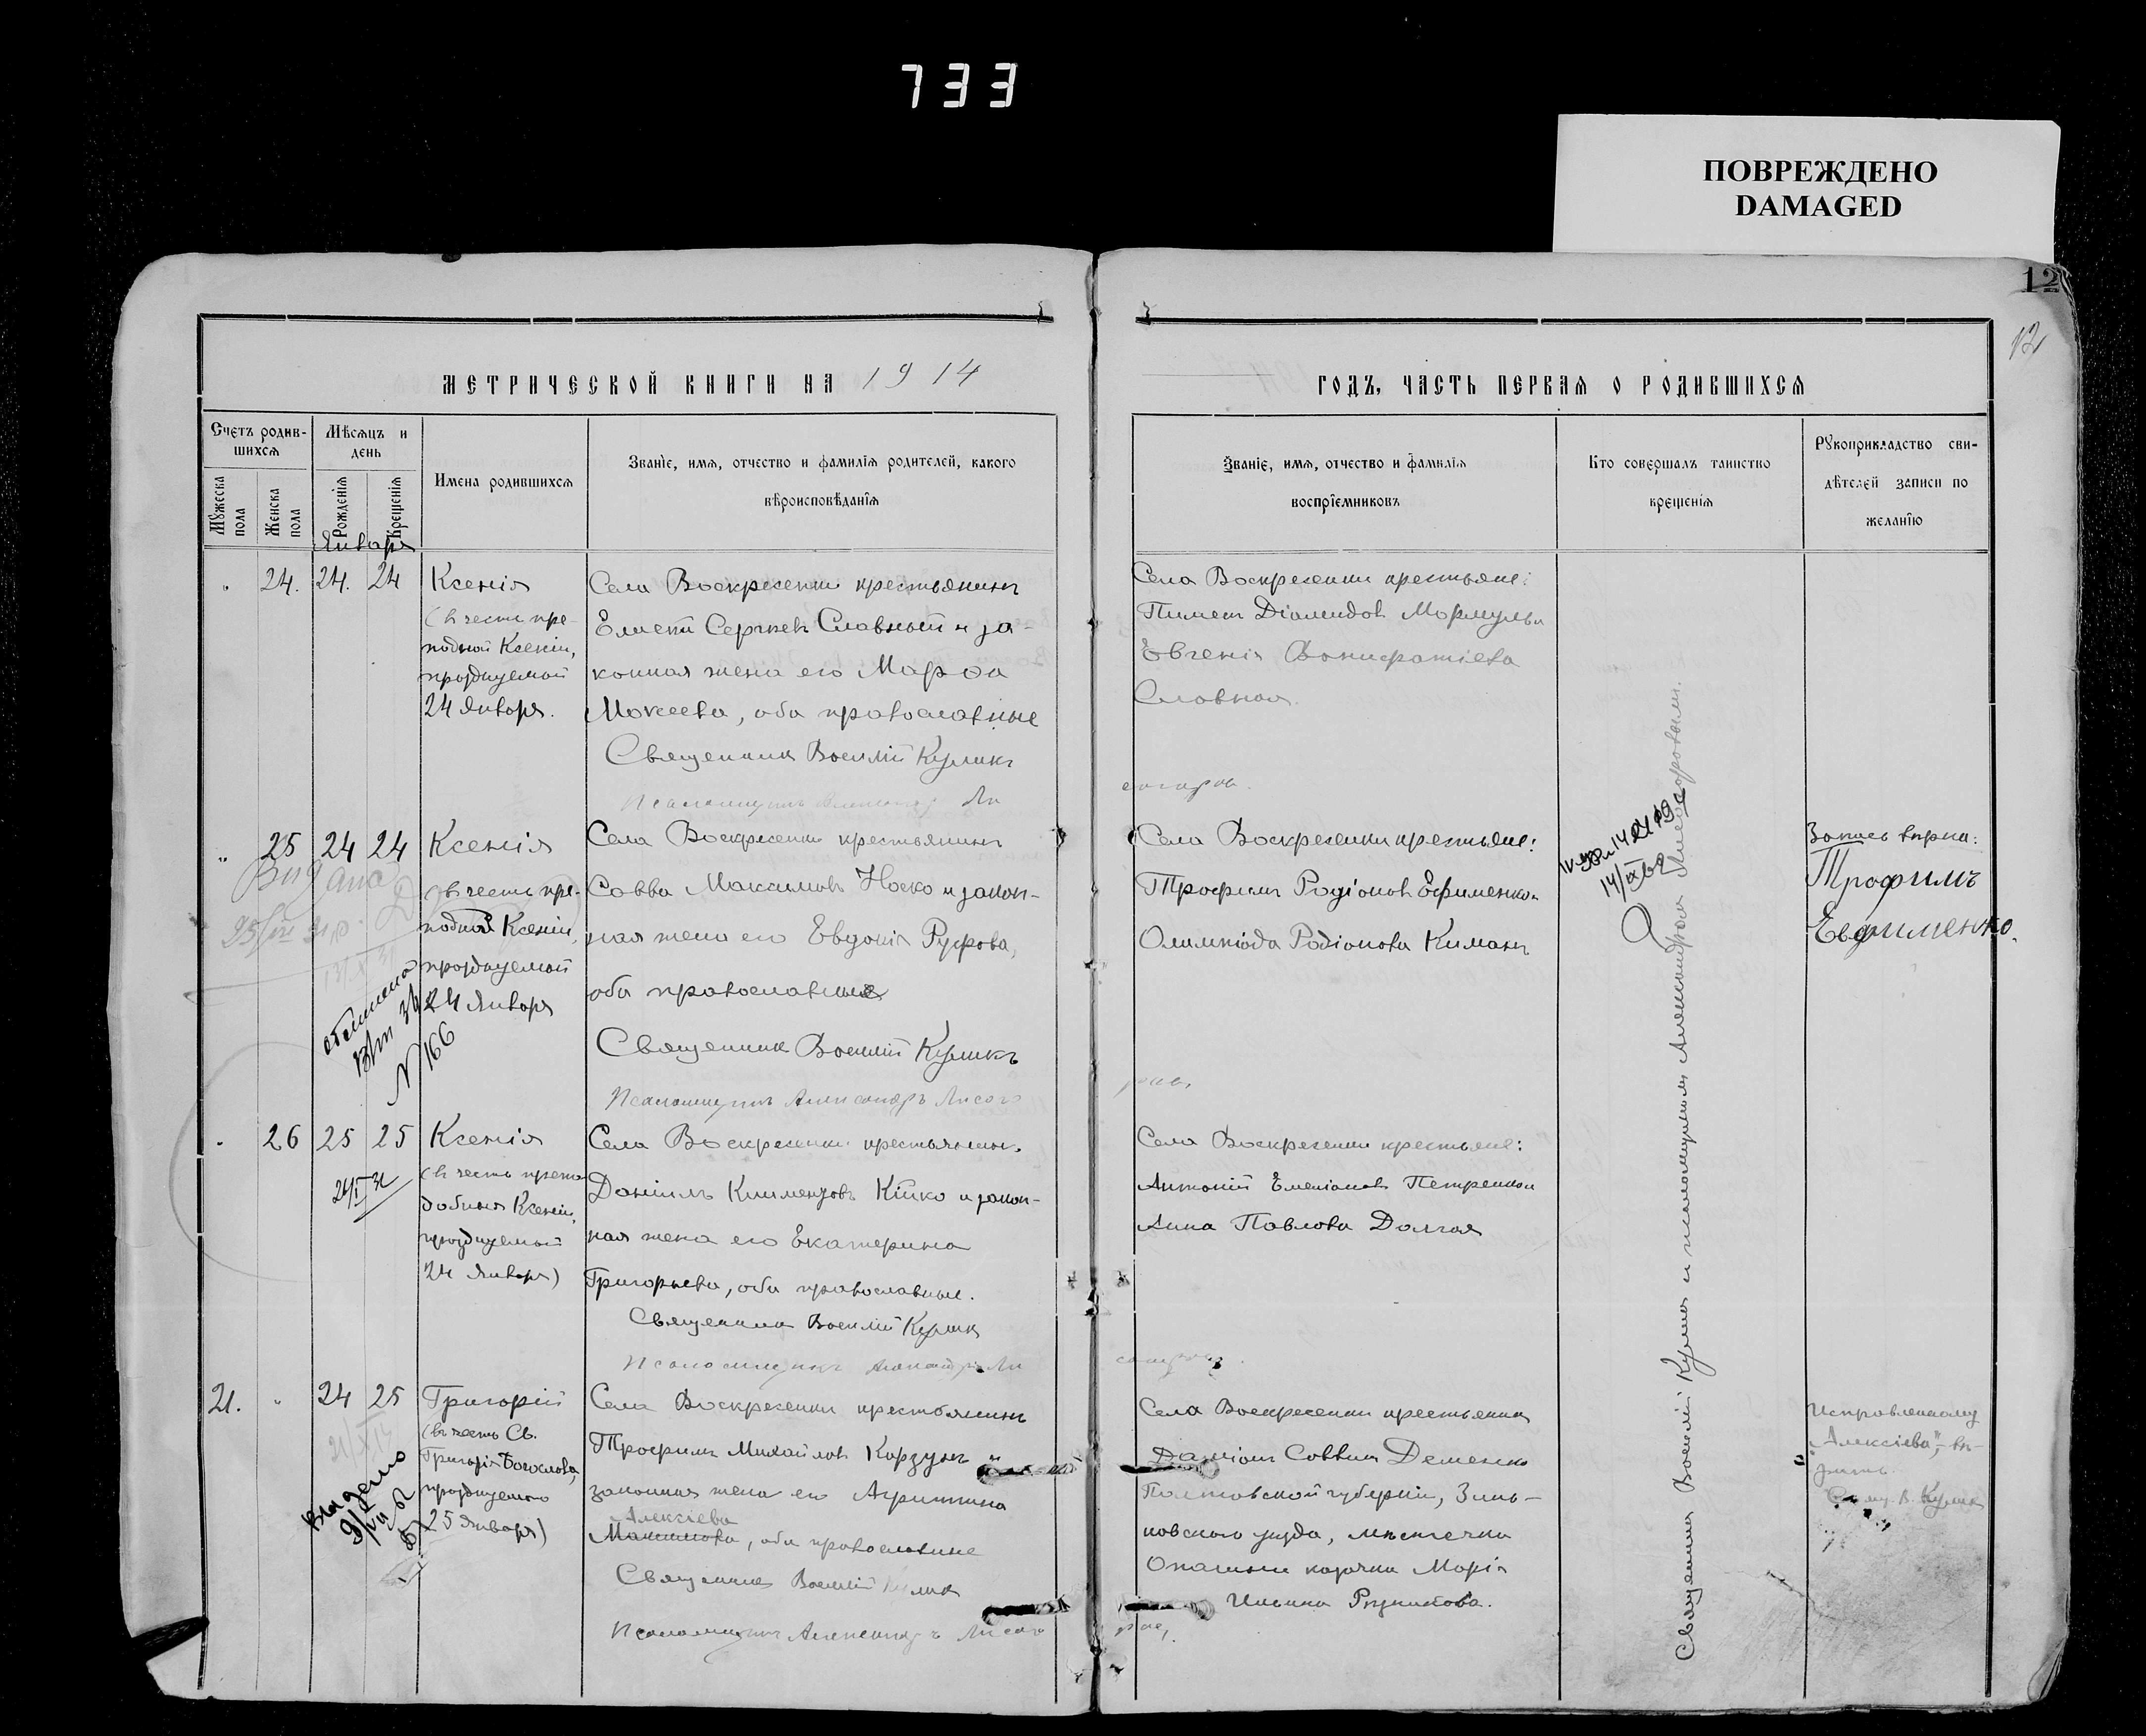 733
ПОВРЕЖДЕНО
DAMAGED
12
12
МЕТРИЧЕСКОЙ КНИГИ НА 1914
ГОДЪ, ЧАСТЬ ПЕРВАЯ О РОДИВШИХСЯ
Счетъ родив-
шихся
Мѣсяцъ и
день
Мужеска
пола
Женска
пола
Рожденія
Крещенія
Имена родившихся
Званіе, имя, отчество и фамилія родителей, какого
вѣроисповѣданія
Званіе, имя, отчество и фамилія
воспріемниковъ
Кто совершалъ таинство
крещенія
Рукоприкладство сви-
дѣтелей записи по
желанію
Января
" 24. 24. 24
Ксенія
(въ честь пре-
подной Ксеніи,
празднуемой
24 Января.
Села Воскресенки крестьянинъ
Елисей Сергѣевъ Славный и за-
конная жена его Марѳа
Мокеева, оба православные
Священникъ Василій Куликъ
Псаломщикъ
Села Воскресенки крестьяне:
Пименъ Діамидовъ Мормуль и
Евгенія Вонифатіева
Славная.
" 25 24 24
Видана
Ксенія
(въ честь пре-
подной Ксеніи,
празднуемой
24 Января
N 166
Села Воскресенки крестьянинъ
Савва Максимовъ Носко и закон-
ная жена его Евдокія Руфова,
оба православные
Священникъ Василій Куликъ
Псаломщикъ Александръ Лисого
Села Воскресенки крестьяне:
Трофимъ Родіоновъ Ефименко и
Олимпіада Родіонова Киманъ
14/IX 62
Запись вѣрна:
Трофимъ
Евфименко.
" 26 25 25
Ксенія
(въ честь препо
добныя Ксеніи,
празднуемой
24 Января)
Села Воскресенки крестьянинъ
Даніилъ Климентовъ Кійко и закон-
ная жена его Екатерина
Григорьева, оба православные.
Священникъ Василій Куликъ
Псаломщикъ
Села Воскресенки крестьяне:
Антоній Емеліановъ Петренко и
Анна Павлова Долгая
21. " 24 25
Выдано
Григорій
(въ честь Св.
Григорія Богослова,
празднуемаго
25 Января)
Села Воскресенки крестьянинъ
Трофимъ Михайловъ Карзунъ и
законная жена его Агриппина
Алексіева
оба православные
Священникъ Василій Куликъ
Псаломщикъ Александръ Лисого
Села Воскресенки крестьянинъ
Даміанъ Саввинъ Деменко
Полтавской губерніи, Зинь-
ковскаго уѣзда, мѣстечка
Опошни казачка Марія
Ильина Рѣзникова.
Исправленному
"Алексіева", вѣ-
рить.
Свящ. В. Куликъ
Священникъ Василій Куликъ и псаломщикомъ Александромъ Лисогоровымъ.